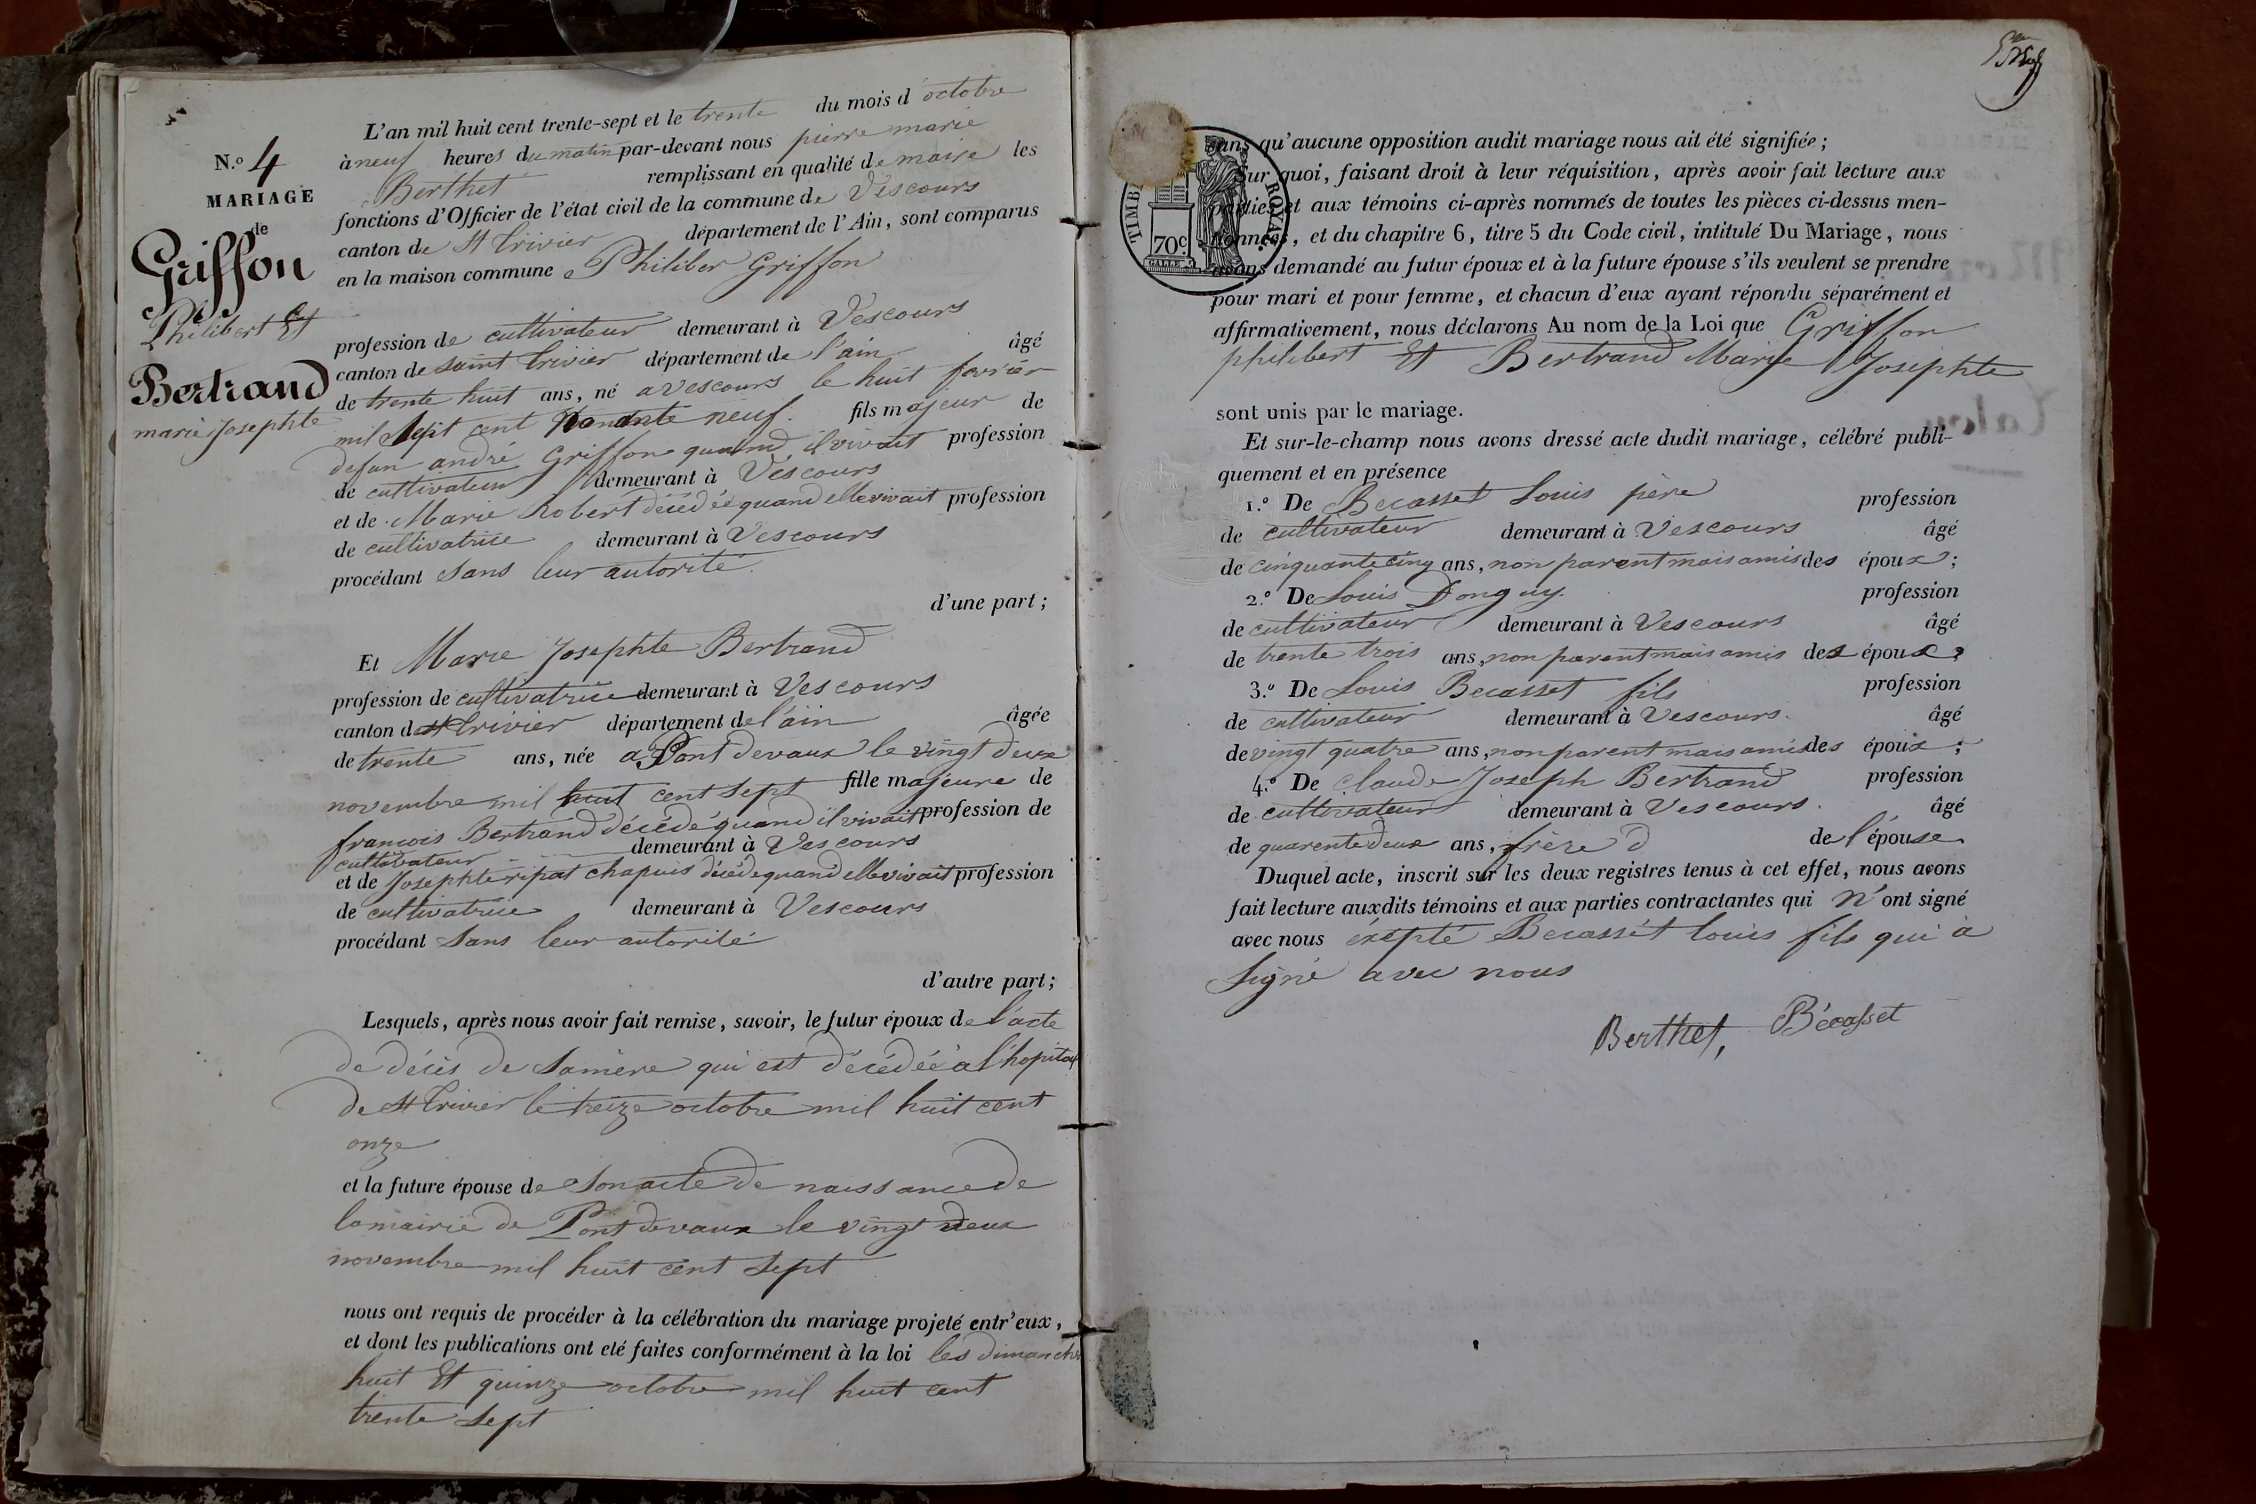 N.o 4
MARIAGE
de
Griffon
Philibert Et
Bertrand
marie Josephte
L'an mil huit cent trente-sept et le trente du mois d'octobre
à neuf heures du matin par-devant nous pierre marie
Berthet remplissant en qualité de maire les
fonctions d'Officier de l'état civil de la commune de Vescours
canton de St trivier département de l'Ain, sont comparus
en la maison commune Philiber Griffon
profession de cultivateur demeurant à Vescours
canton de saint trivier département de l'ain âgé
de trente huit ans, né a vescours le huit fevrier
mil sept cent nonante neuf. fils majeur de
defun andré Griffon quand il vivait profession
de cultivateur demeurant à Vescours
et de Marie Robert décédée quand elle vivait profession
de cultivatrice demeurant à Vescours
procédant sans leur autorité.
d'une part;
Et Marie Josephte Bertrand
profession de cultivatrice demeurant à Vescours
canton de St trivier département de l'ain âgée
de trente ans, née a Pont devaux le vingt deux
novembre mil huit cent sept fille majeure de
francois Bertrand décédé quand il vivait profession de
cultivateur demeurant à Vescours
et de Josephte ripat chapuis décédé quand elle vivait profession
de cultivatrice demeurant à Vescours
procédant sans leur autorité
d'autre part;
Lesquels, après nous avoir fait remise, savoir, le futur époux de l'acte
de décès de sa mère qui est décédée a l'hopital
de St trivier le treize octobre mil huit cent
onze
et la future épouse de son acte de naissance de
la mairie de Pont devaux le vingt deux
novembre mil huit cent sept
nous ont requis de procéder à la célébration du mariage projeté entr'eux,
et dont les publications ont eté faites conformément à la loi les dimanche
huit Et quinze octobre mil huit cent
trente sept
TIMBRE ROYAL
70c
sans qu'aucune opposition audit mariage nous ait été signifiée;
Sur quoi, faisant droit à leur réquisition, après avoir fait lecture aux
parties et aux témoins ci-après nommés de toutes les pièces ci-dessus men-
tionnées, et du chapitre 6, titre 5 du Code civil, intitulé Du Mariage, nous
avons demandé au futur époux et à la future épouse s'ils veulent se prendre
pour mari et pour femme, et chacun d'eux ayant répondu séparément et
affirmativement, nous déclarons Au nom de la Loi que Griffon
philibert Et Bertrand Marie Josephte
sont unis par le mariage.
Et sur-le-champ nous avons dressé acte dudit mariage, célébré publi-
quement et en présence
1.o De Becasset Louis père profession
de cultivateur demeurant à Vescours âgé
de cinquante cinq ans, non parent mais amis des époux;
2.o De Louis Donguy. profession
de cultivateur demeurant à Vescours âgé
de trente trois ans, non parent mais amis des époux;
3.o De Louis Becasset fils profession
de cultivateur demeurant à Vescours. âgé
de vingt quatre ans, non parent mais amis des époux;
4.o De Claude Joseph Bertrand profession
de cultivateur demeurant à Vescours. âgé
de quarente deux ans, frère d de l'épouse
Duquel acte, inscrit sur les deux registres tenus à cet effet, nous avons
fait lecture auxdits témoins et aux parties contractantes qui n'ont signé
avec nous éxépté Becassét louis fils qui à
signé avec nous
Berthet, Bécasset